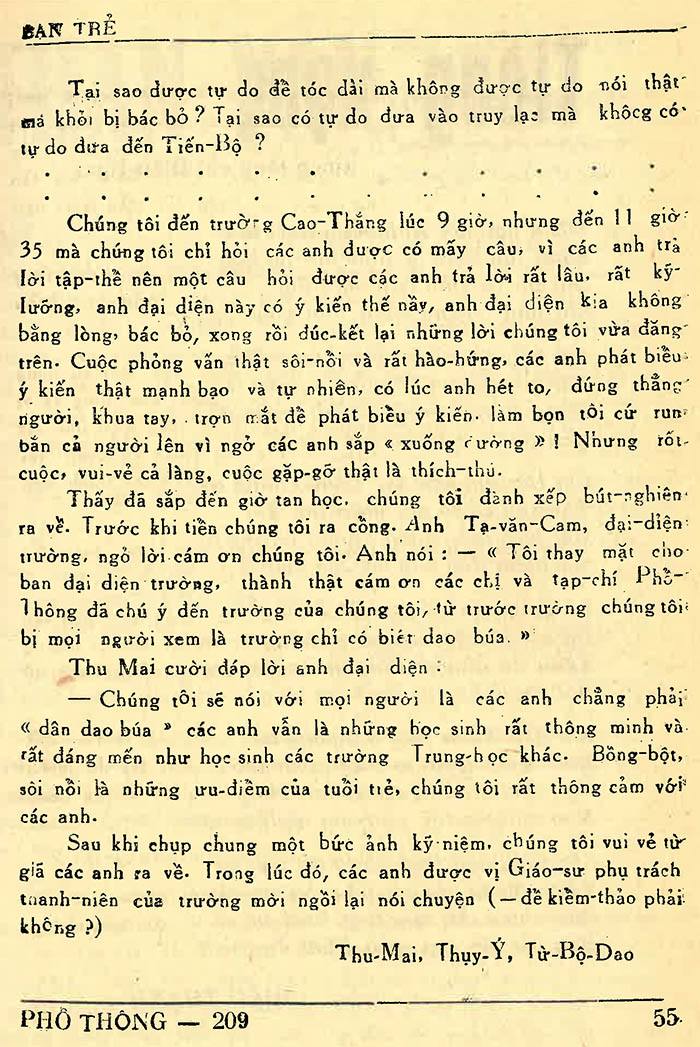 BẠN TRẺ
Tại sao được tự do để tóc dài mà không được tự do nói thật
mà khỏi bị bác bỏ ? Tại sao có tự do đưa vào truy lạc mà khôcg có
tự do đưa đến Tiến-Bộ ?
. . . . . . . . . . . .
. . . . . . . . . . . .
Chúng tôi đến trường Cao-Thắng lúc 9 giờ, nhưng đến 11 giờ
35 mà chúng tôi chỉ hỏi các anh được có mấy câu, vì các anh trả
lời tập-thể nên một câu hỏi được các anh trả lời rất lâu, rất kỹ-
lưỡng, anh đại diện này có ý kiến thế nầy, anh đại diện kia không
bằng lòng, bác bỏ, xong rồi đúc-kết lại những lời chúng tôi vừa đăng
trên. Cuộc phỏng vấn thật sôi-nổi và rất hào-hứng, các anh phát biểu
ý kiến thật mạnh bạo và tự nhiên, có lúc anh hét to, đứng thẳng
người, khua tay, trợn mắt để phát biểu ý kiến. làm bọn tôi cứ run
bắn cả người lên vì ngở các anh sắp « xuống đường » ! Nhưng rốt
cuộc, vui-vẻ cả làng, cuộc gặp-gỡ thật là thích-thú.
Thấy đã sắp đến giờ tan học, chúng tôi đành xếp bút-nghiên
ra về. Trước khi tiễn chúng tôi ra cổng. Anh Tạ-văn-Cam, đại-diện
trường, ngỏ lời cám ơn chúng tôi. Anh nói : — « Tôi thay mặt cho
ban đại diện trường, thành thật cám ơn các chị và tạp-chí Phổ-
Thông đã chú ý đến trường của chúng tôi, từ trước trường chúng tôi
bị mọi người xem là trường chỉ có biết dao búa. »
Thu Mai cười đáp lời anh đại diện :
— Chúng tôi sẽ nói với mọi người là các anh chẳng phải
« dân dao búa » các anh vẫn là những học sinh rất thông minh và
rất đáng mến như học sinh các trường Trung-học khác. Bồng-bột,
sôi nổi là những ưu-điểm của tuổi trẻ, chúng tôi rất thông cảm với
các anh.
Sau khi chụp chung một bức ảnh kỷ niệm, chúng tôi vui vẻ từ
giã các anh ra về. Trong lúc đó, các anh được vị Giáo-sư phụ trách
thanh-niên của trường mời ngồi lại nói chuyện (— để kiểm-thảo phải
không ?)
Thu-Mai, Thụy-Ý, Từ-Bộ-Dao
PHỔ THÔNG — 209 55